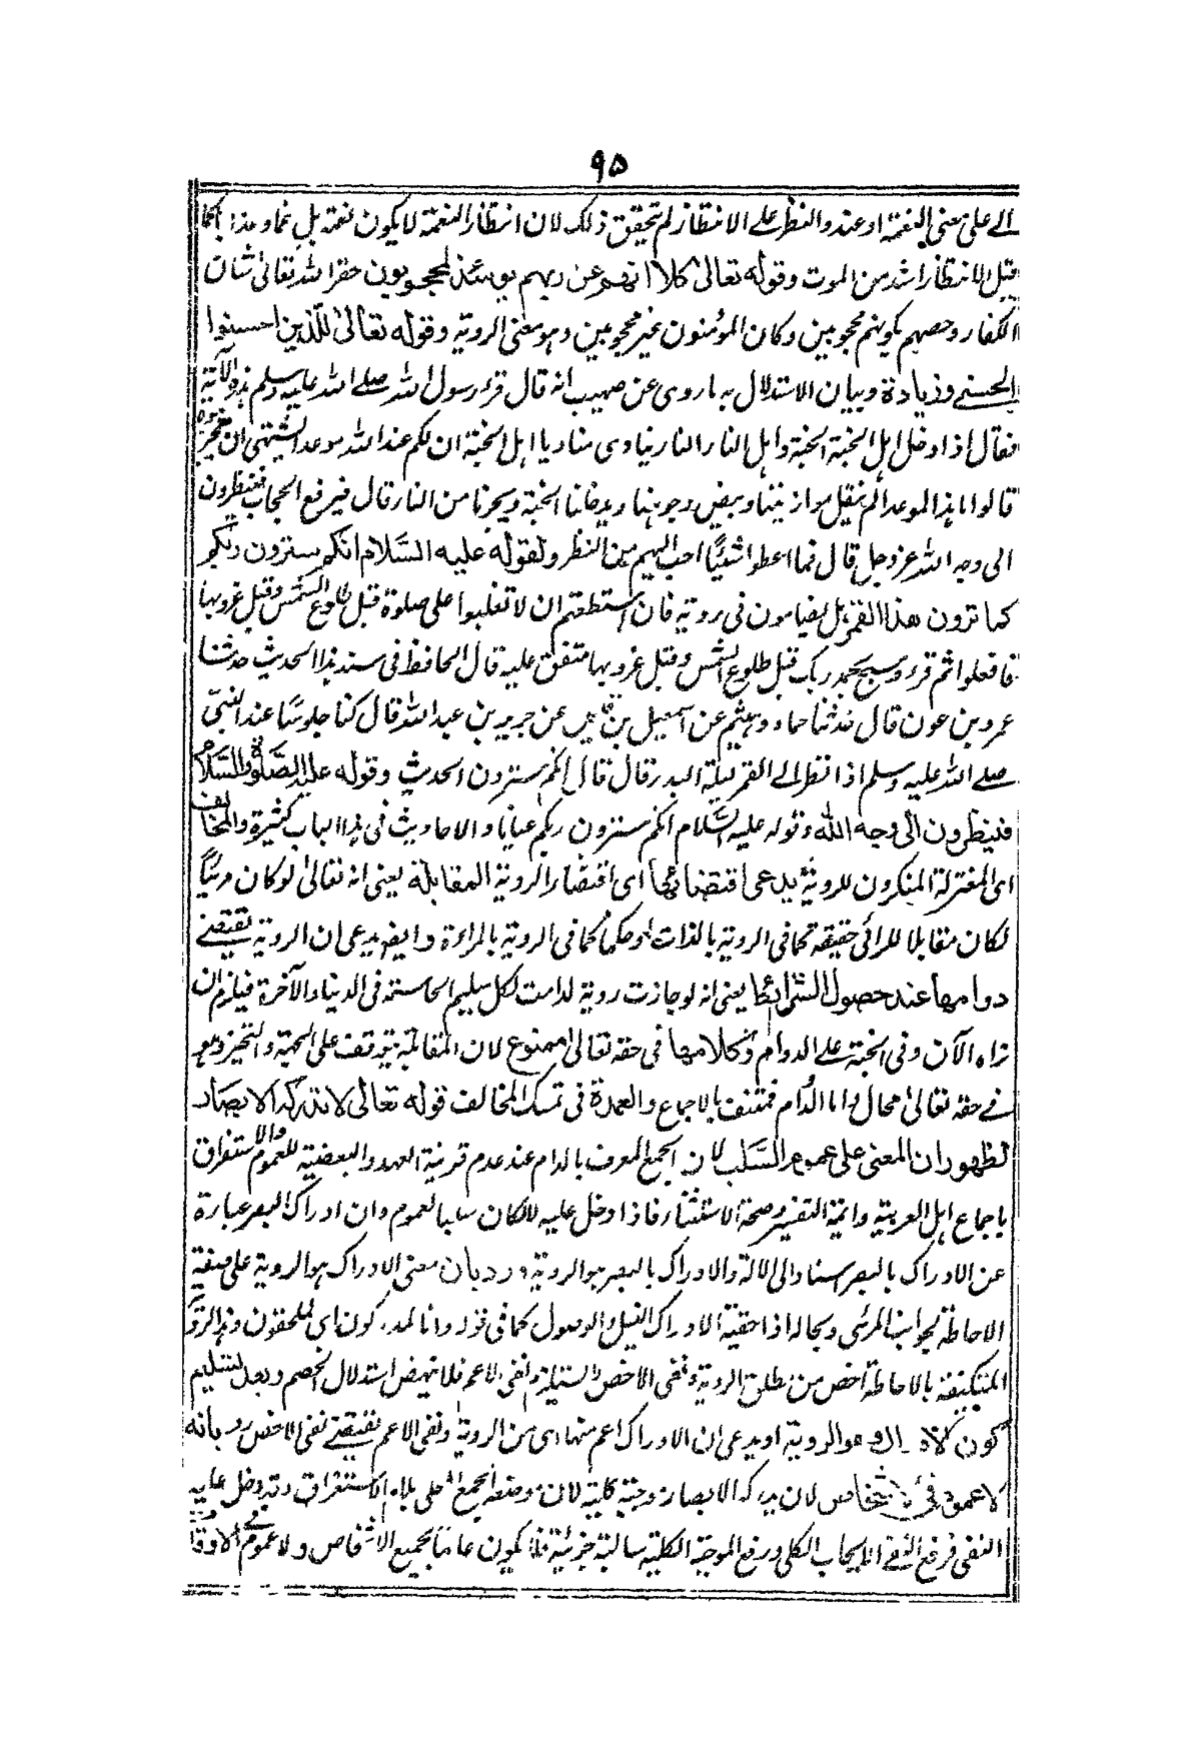 ٩٥
الى على معنى النعمة او عند والنظر على الانتظار لم يتحقق ذلك لان انتظار النعمة لا يكون نعمة بل غما وهذا كما
قيل الانتظار اشد من الموت وقوله تعالى كلا انهم عن ربهم يومئذ لمحجوبون حقر الله تعالى شان
الكفار وخصهم بكونهم محجوبين وكان المؤمنون غير محجوبين وهو معنى الروية وقوله تعالى للذين احسنوا
الحسنى وزيادة وبيان الاستدلال به ما روى عن صهيب انه قال قرء رسول الله صلى الله عليه وسلم هذه الآية
فقال اذا دخل اهل الجنة الجنة واهل النار النار ينادى مناد يا اهل الجنة ان لكم عند الله موعدا يشتهى ان ينجزكموه
قالوا ما هذا الموعد الم يثقل موازيننا ويبيض وجوهنا ويدخلنا الجنة ويجرنا من النار قال فيرفع الحجاب فينظرون
الى وجه الله عز وجل قال فما اعطوا شيئا احب اليهم من النظر ولقوله عليه السلام انكم سترون ربكم
كما ترون هذا القمر لا يضامون فى روية فان استطعتم ان لا تغلبوا على صلوة قبل طلوع الشمس وقبل غروبها
فافعلوا ثم قرء وسبح بحمد ربك قبل طلوع الشمس وقبل غروبها متفق عليه قال الحافظ فى سند هذا الحديث حدثنا
عمرو بن عون قال حدثنا حماد وهشيم عن اسمعيل بن عن جرير بن عبد الله قال كنا جلوسا عند النبى
صلى الله عليه وسلم اذا نظر الى القمر ليلة البدر قال قال انكم سترون الحديث وقوله عليه الصلوة والسلام
فينظرون الى وجه الله وقوله عليه السلام انكم سترون ربكم عيانا والاحاديث فى هذا الباب كثيرة والمخالف
اى المعتزلة المنكرون للروية يدعى اقتضاءها اى اقتضاء الروية المقابلة يعنى انه تعالى لو كان مرئيا
لكان مقابلا للرائى حقيقة كما فى الروية بالذات او حكما كما فى الروية بالمراءة وايضا يدعى ان الروية تقتضى
دوامها عند حصول الشرائط يعنى انه لو جازت روية لدامت لكل سليم الحاسة فى الدنيا والآخرة فيلزم ان
نراه الآن وفى الجنة على الدوام وكلاهما فى حقه تعالى ممنوع لان المقابلة يتوقف على الجهة والتحيز وهو
فى حقه تعالى محال واما الدوام فمنتف بالاجماع والعمدة فى تمسك المخالف قوله تعالى لا تدركه الابصار
لظهور ان المعنى على عموم السلب لان الجمع المعرف باللام عند عدم قرينة العهد والبعضية للعموم والاستغراق
باجماع اهل العربية وائمة التفسير وصحة الاستثناء فاذا دخل عليه كان سلبا لعموم وان ادراك البصر عبارة
عن الادراك بالبصر اسنادا الى الالة والادراك بالبصر هو الروية ورد بان معنى الادراك هو الروية على صفة
الاحاطة بجوانب المرئى وبحاله اذا حقيقة الادراك النيل والوصول كما فى قوله وانا لمدركون اى لملحقون وهذا الروية
المتكيفة بالاحاطة اخص من مطلق الروية ونفى الاخص لا يستلزم نفى الاعم فلا ينهض استدلال الخصم وبعد تسليم
كون الادراك هو الروية او يدعى ان الادراك اعم منها اى من الروية ونفى الاعم يقتضى نفى الاخص رد بانه
لا عموم فى الاشخاص لان يدركه الابصار موجبة كلية لان موضعه الجمع المحلى بلام الاستغراق وقد دخل عليه
النفى فرفع النفى الايجاب الكلى ورفع الموجبة الكلية سالبة جزئية فلا يكون عاما بجميع الاشخاص ولا عموم فى الاوقات